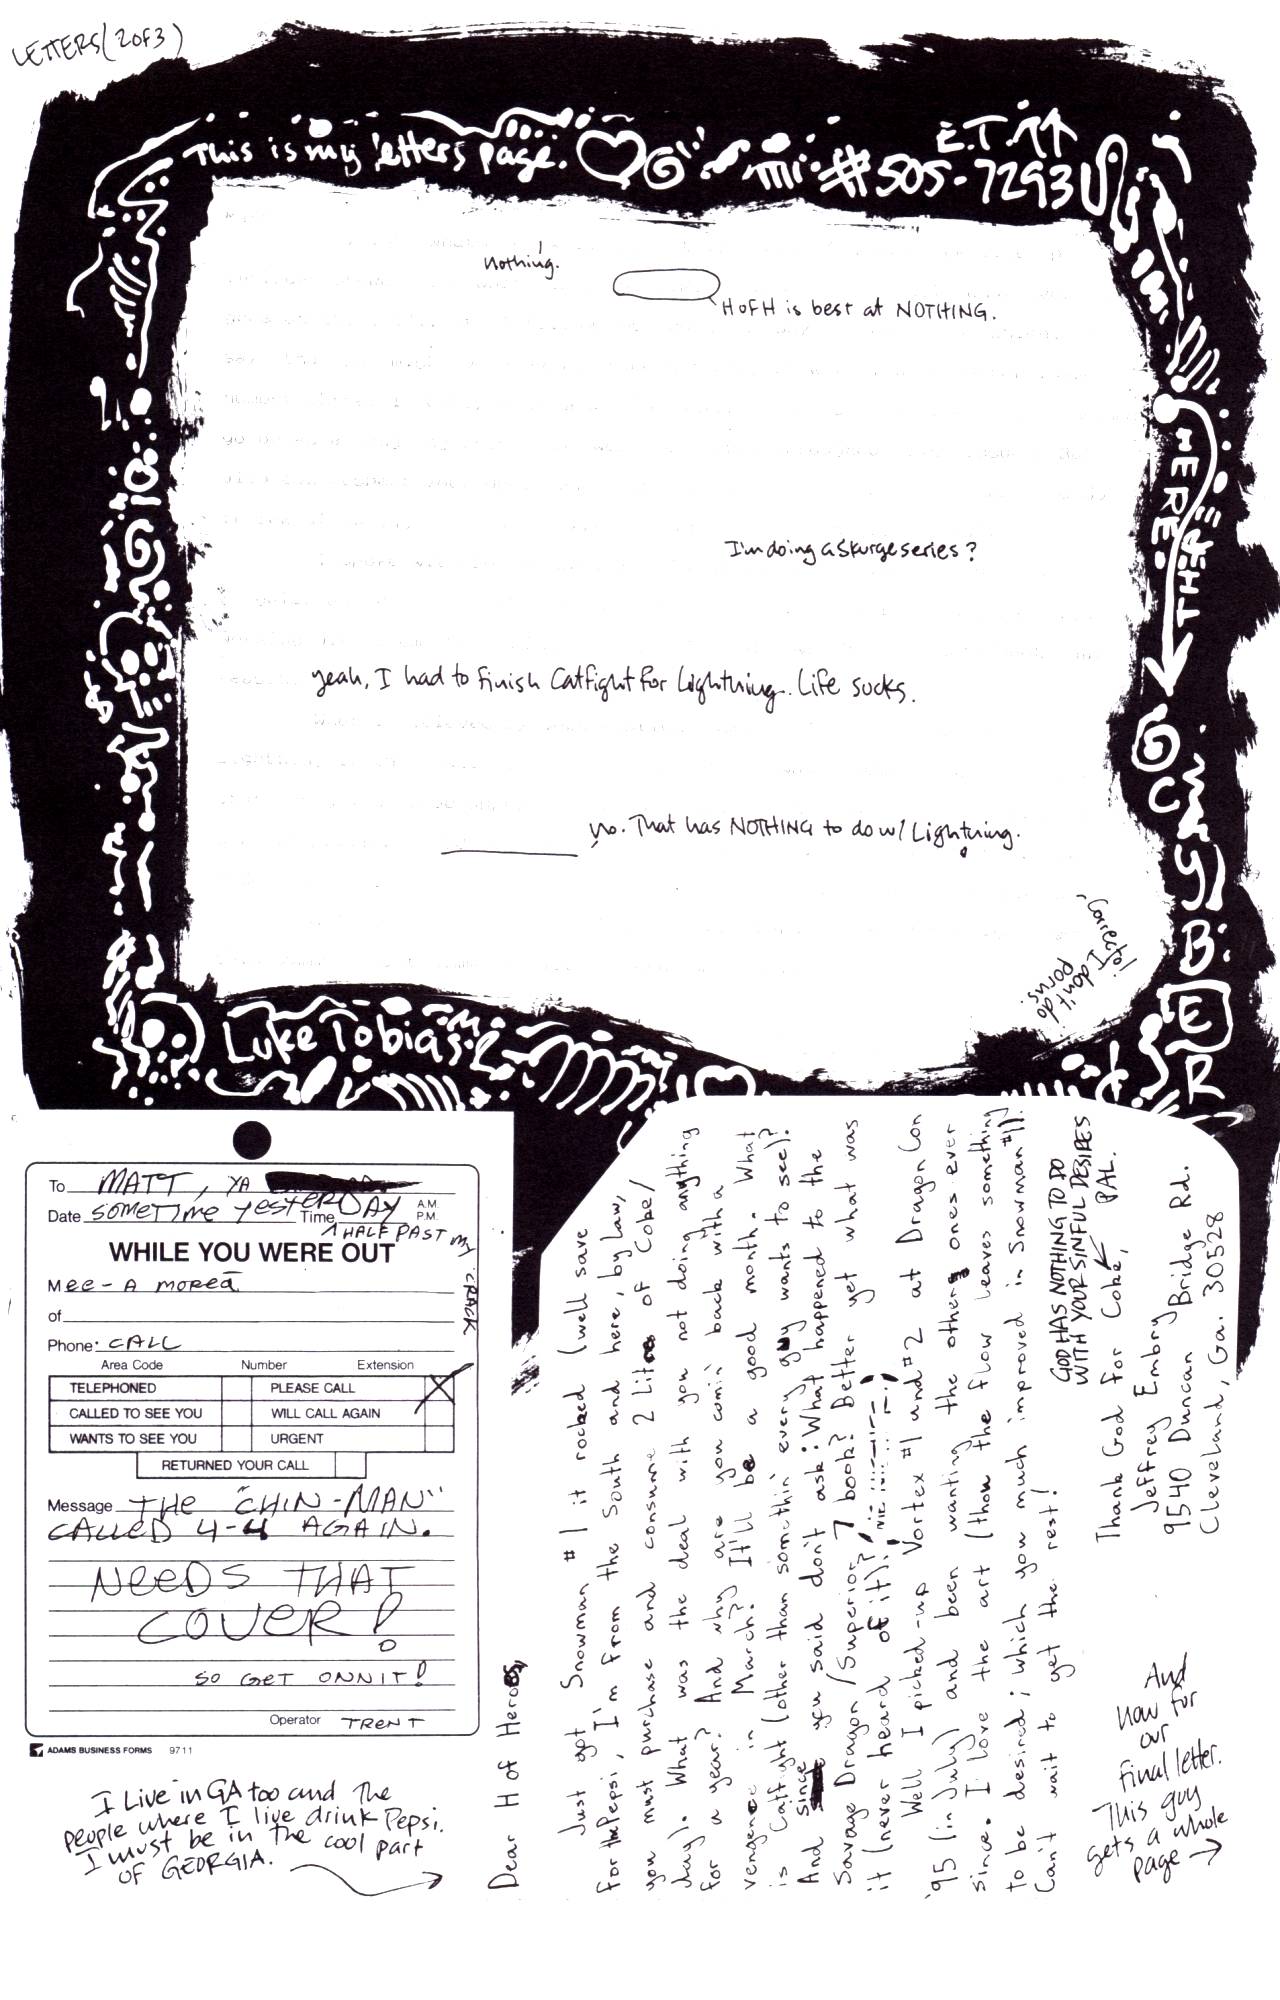 LETTERS (2 OF 3)
This is my letters page.
E.T.
#505-7293
HERE.
RIGHT
CYBER
nothing.
H of H is best at NOTHING.
I'm doing a Skurge series?
yeah, I had to finish Catfight for Lightning. Life sucks.
no. That has NOTHING to do w/ Lightning.
I don't do
porns.
Luke Tobias
To MATT, YA
Date SOMETIME YESTERDAY Time A.M. P.M.
HALF PAST MY CRACK
WHILE YOU WERE OUT
Mee-A morea
of
Phone: CALL
Area Code Number Extension
TELEPHONED PLEASE CALL
CALLED TO SEE YOU WILL CALL AGAIN
WANTS TO SEE YOU URGENT
RETURNED YOUR CALL
Message THE "CHIN-MAN"
CALLED 4-4 AGAIN.
NEEDS THAT
COVER!
SO GET ONNIT!
Operator TRENT
ADAMS BUSINESS FORMS 9711
I Live in GA too and the
people where I live drink Pepsi.
I must be in the cool part
OF GEORGIA.
Dear H of Heroes,
Just got Snowman #1 it rocked (well save
for the Pepsi, I'm from the South and here, by law,
you must purchase and consume 2 Litres of Coke/
day). What was the deal with you not doing anything
for a year? And why are you comin' back with a
vengence in March? It'll be a good month. What
is Catfight (other than somethin' every guy wants to see)?
And since you said don't ask: What happened to the
Savage Dragon/Superior 7 book? Better yet what was
it (never heard of it)?
Well I picked-up Vortex #1 und #2 at Dragon Con
'95 (in July) and been wanting the others ones ever
since. I love the art (thou the flow leaves something
to be desired; which you much improved in Snowman #1).
Can't wait to get the rest!
GOD HAS NOTHING TO DO
WITH YOUR SINFUL DESIRES
PAL.
Thank God for Coke,
Jeffrey Embry
9540 Duncan Bridge Rd.
Cleveland, Ga. 30528
And
now for
our
final letter.
This guy
gets a whole
page →